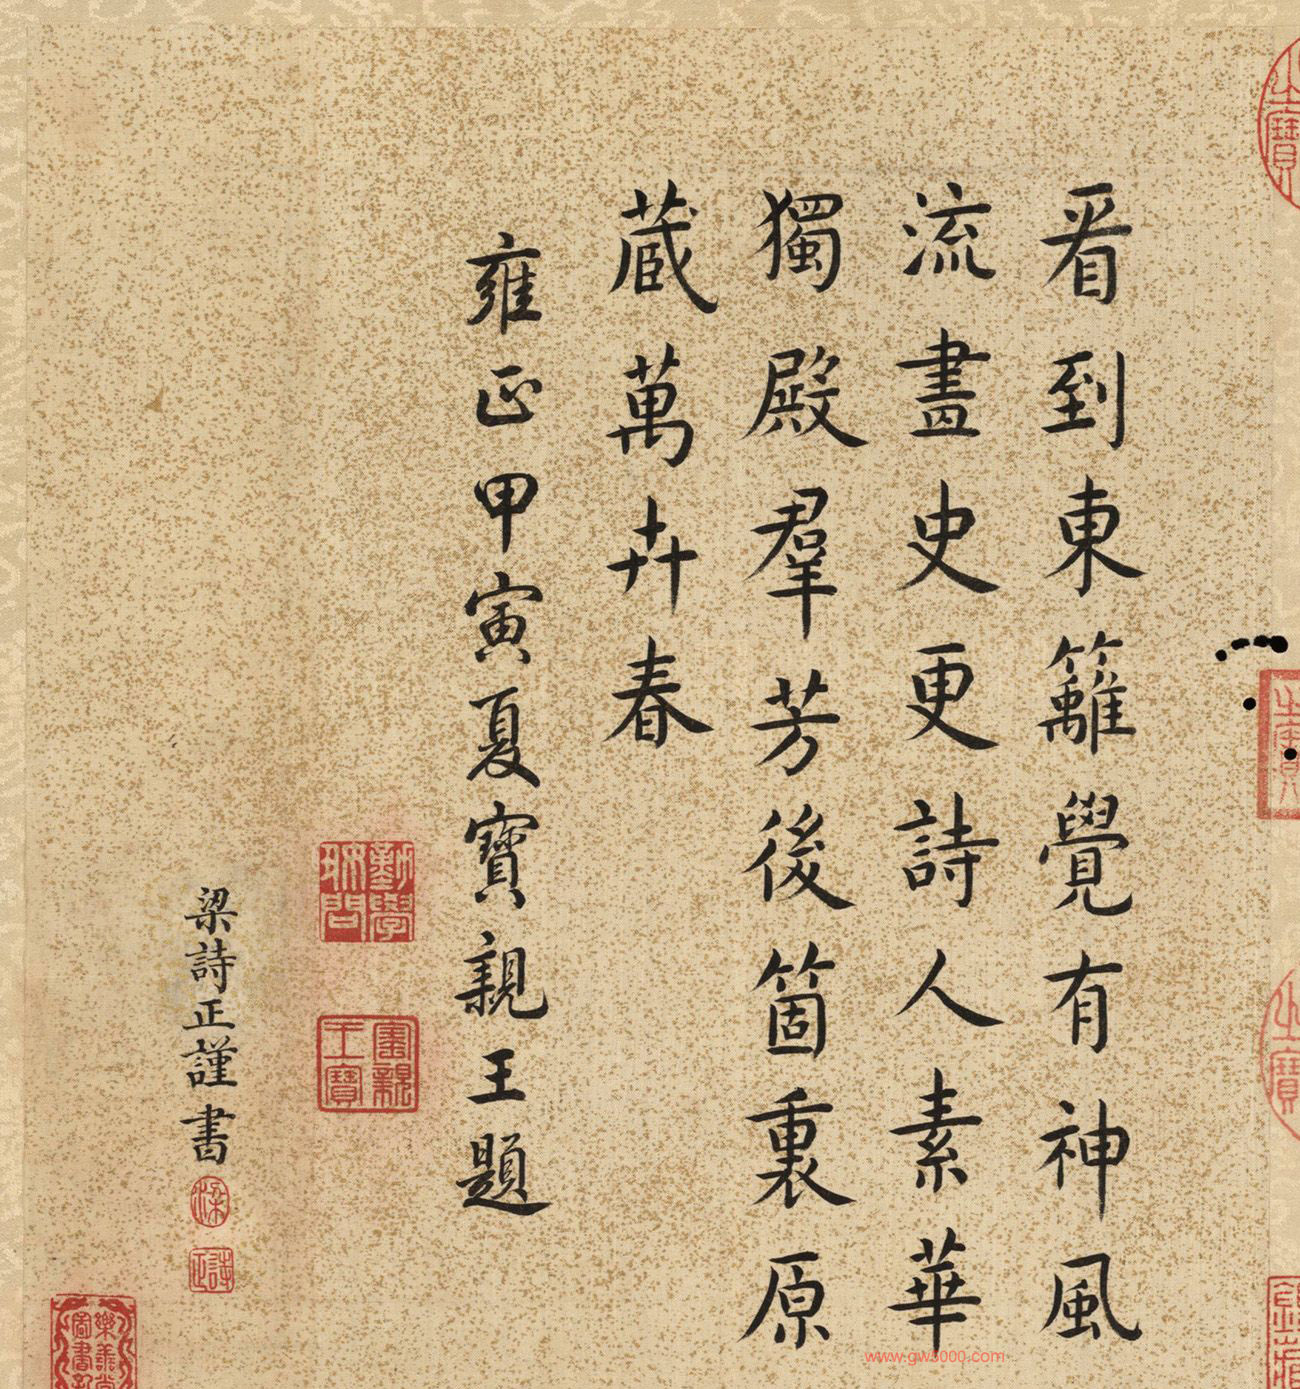 看到東籬覺有神風
流畫史更詩人素華
獨殿羣芳後箇裏原
蔵萬卉春
雍正甲寅夏寶親王題
梁詩正謹書
www.gw5000.com